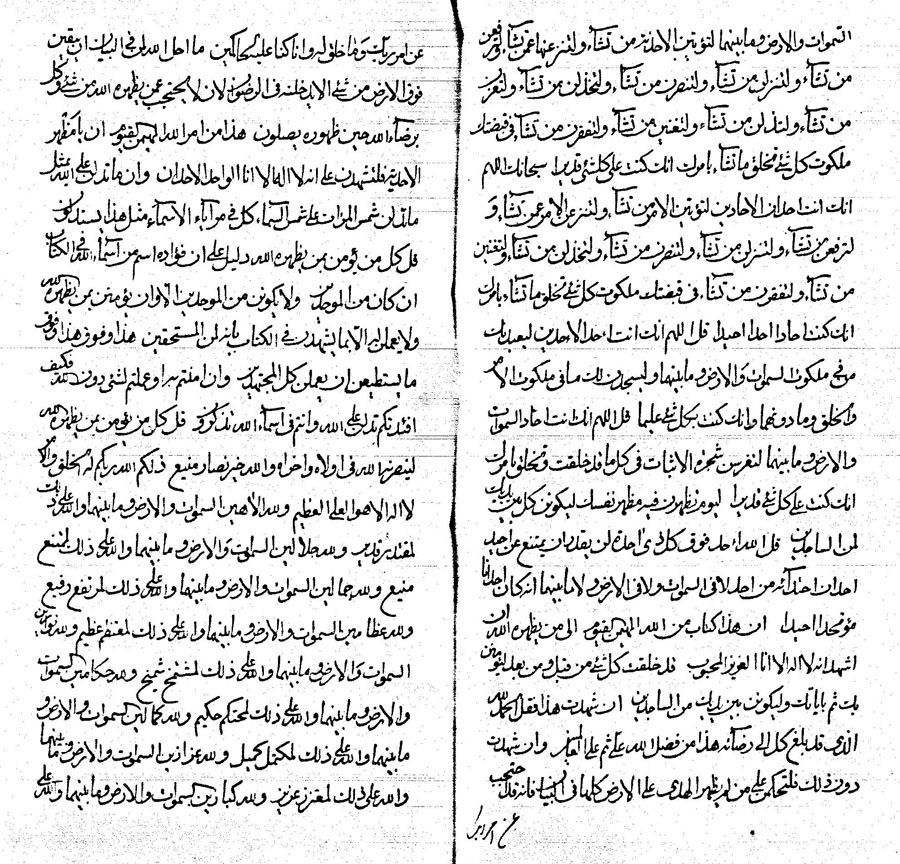 السموات والارض وما بينهما لتؤتين الاحدية من تشاء ولتنزعنها عمن تشاء ولترفعن
من تشاء ولتنزلن من تشاء ولتنصرن من تشاء ولتخذلن من تشاء ولتعزن
من تشاء ولتذلن من تشاء ولتغنين من تشاء ولتفقرن من تشاء في قبضتك
ملكوت كل شئ تخلق ما تشاء بامرك انك كنت على كل شئ قديرا سبحانك اللهم
انك انت احدان الاحادين لتؤتين الامر من تشاء ولتنزعن الامر عمن تشاء و
لترفعن من تشاء ولتنزلن من تشاء ولتنصرن من تشاء ولتخذلن من تشاء ولتغنين
من تشاء ولتفقرن من تشاء في قبضتك ملكوت كل شئ تخلق ما تشاء بامرك
انك كنت احادا احدا احيدا قل اللهم انك انت احد الاحدين ليعبدنك
من في ملكوت السموات والارض وما بينهما وليسجدن لك ما في ملكوت الامر
والخلق وما دونهما وانك كنت بكل شئ عليما قل اللهم انك انت احاد السموات
والارض وما بينهما لتغرسن شجرة الاثبات في كل ما قد خلقت وتخلق بامرك
انك كنت على كل شئ قديرا ليوم تظهرن فيه مظهر نفسك ليكونن كل بين يديك
لمن الساجدين قل الله احد فوق كل ذي احدة لن يقدر ان يمتنع عن احيد
احدان احدائه من احد لا في السموات ولا في الارض ولا ما بينهما انه كان احدانا
مؤتحدا احيدا ان هذا كتاب من الله المهيمن القيوم الى من يظهره الله ان
اشهد انه لا اله الا انا العزيز المحبوب قد خلقت كل شئ من قبل ومن بعد ليؤمنن
بك ثم باياتك وليكونن بين يديك من الساجدين ان شهدت هذا فقل الحمد لله
الذي قد بلغ كل الى رضائه هذا من فضل الله علي ثم على العالمين وان شهدت
دون ذلك فلتحكمن على من لم يظهر الهدى على الارض كلها في البيان فانه قد احتجب
عن امر ربك وما خلق له وانا كنا عليه لحاكمين ما احل الله لمن في البيان ان يبقين
فوق الارض من شئ الا يدخلنه في الرضوان لان لا يحتجب عمن يظهره الله من شئ وكل
برضاء الله حين ظهوره يصلون هذا من امر الله المهيمن القيوم ان يا مظهر
الاحدية فلتشهدن على انه لا اله الا انا الواحد الاحدان وان ما تدل على الله بمثل
ما تدلن شمس المرات على شمس السماء كل في مرآياء الاسماء مثل هذا ليستدلون
قل كل من يؤمن بمن يظهره الله دليل على ان فؤاده اسم من اسماء الله في الكتاب
ان كان من الموحدين ولا يكونن من الموحدين الا وان يؤمنن بمن يظهره الله
ولا يعملن له الا بما يشهدن في الكتاب بانه لمن المستحقين هذا وفوق هذا فوق
ما يستطيعن ان يعملن كل المجتهدين وان املتم به او عملتم لشئ دون الله فكيف
افئدتكم تدل على الله وانتم في اسماء الله تذكرون قل كل من يؤمن بمن يظهره الله
لينصرنه الله في اولاه واخراه والله خير نصار منيع ذلكم الله ربكم له الخلق والامر
لا اله الا هو العلي العظيم ولله الاهين السموات والارض وما بينهما والله على ذلك
لمقتدر قدير ولله جلالين السموات والارض وما بينهما والله على ذلك لممتنع
منيع ولله جمالين السموات والارض وما بينهما والله على ذلك لمرتفع رفيع
ولله عظامين السموات والارض وما بينهما والله على ذلك لمعتظم عظيم ولله نوارين
السموات والارض وما بينهما والله على ذلك لمشتمخ شميخ ولله حكامين السموات
والارض وما بينهما والله على ذلك لمحتكم حكيم ولله كمالين السموات والارض و
ما بينهما والله على ذلك لمكتمل كميل ولله عزازين السموات والارض وما بينهما
والله على ذلك لمعتزز عزيز ولله كبارين السموات والارض وما بينهما والله على